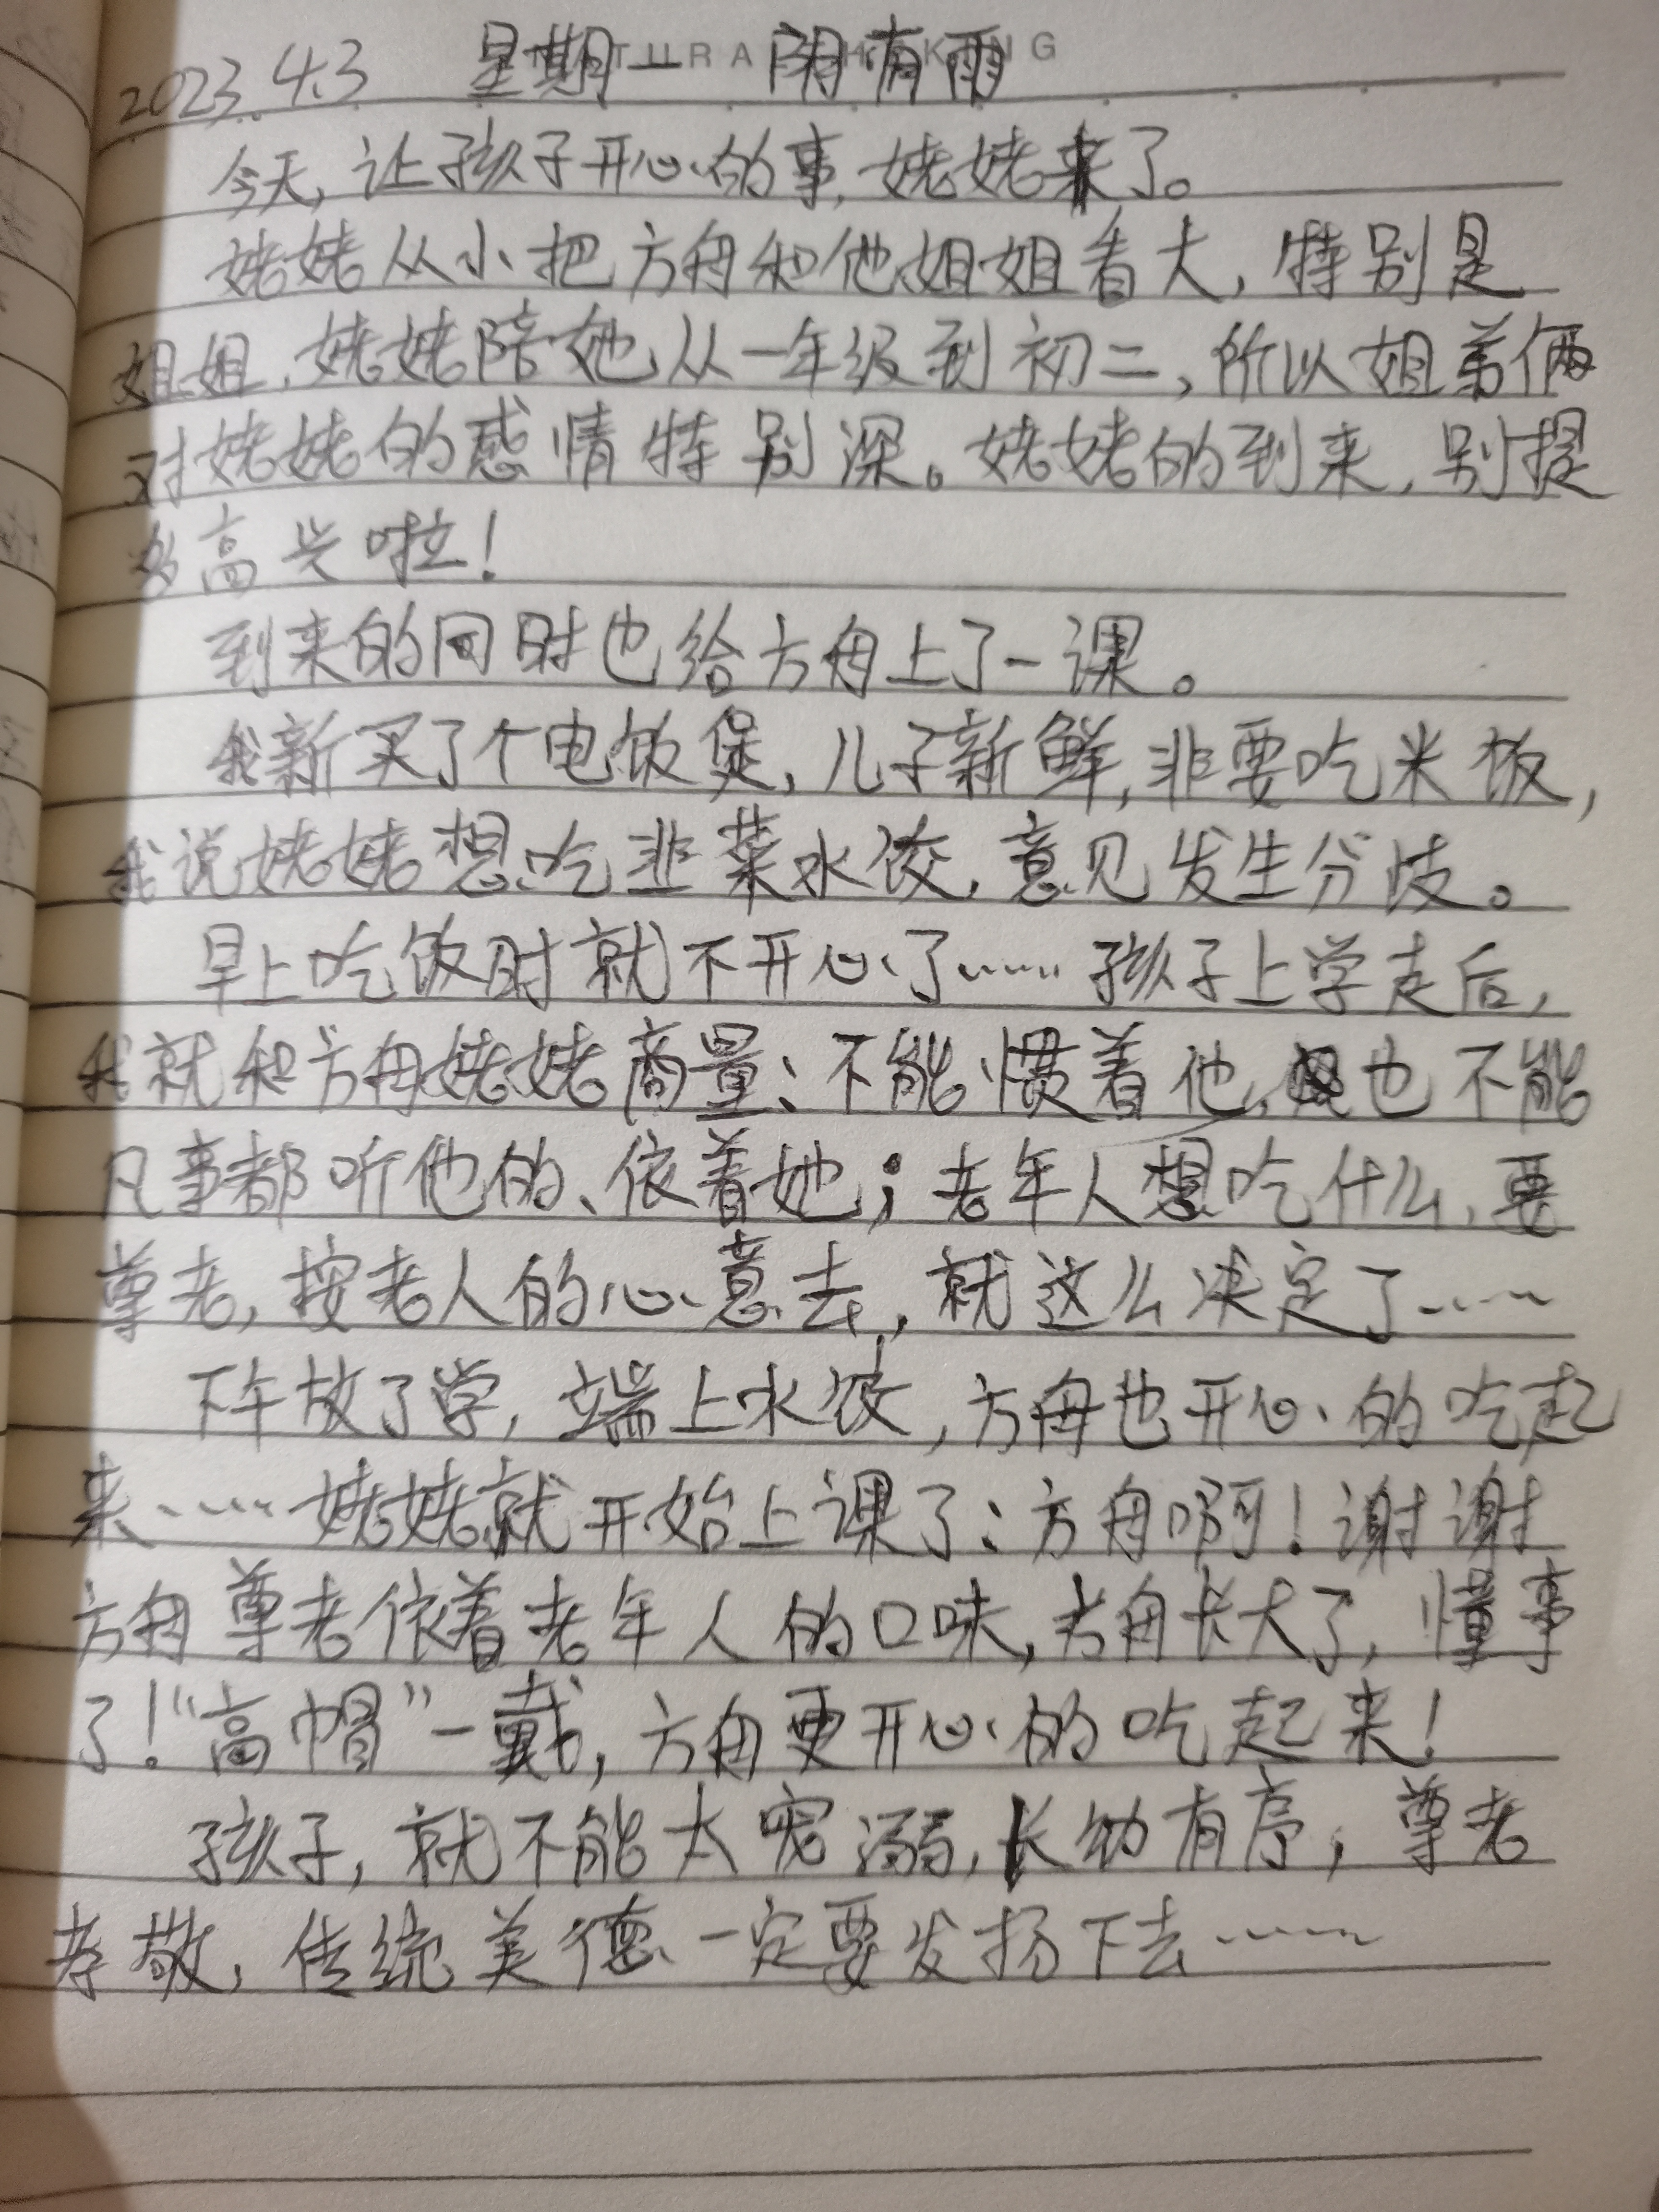 2023.4.3 星期一 阴有雨
今天,让孩子开心的事,姥姥来了。
姥姥从小把方舟和他姐姐看大,特别是
姐姐,姥姥陪她从一年级到初二,所以姐弟俩
对姥姥的感情特别深。姥姥的到来,别提
多高兴啦!
到来的同时也给方舟上了一课。
我新买了个电饭煲,儿子新鲜,非要吃米饭,
我说姥姥想吃韭菜水饺,意见发生分歧。
早上吃饭时就不开心了……孩子上学走后,
我就和方舟姥姥商量:不能惯着他,也不能
凡事都听他的、依着她;老年人想吃什么,要
尊老,按老人的心意去,就这么决定了……
下午放了学,端上水饺,方舟也开心的吃起
来……姥姥就开始上课了:方舟啊!谢谢
方舟尊老依着老年人的口味,方舟长大了,懂事
了!“高帽”一戴,方舟更开心的吃起来!
孩子,就不能太宠溺,长幼有序,尊老
孝敬,传统美德一定要发扬下去……